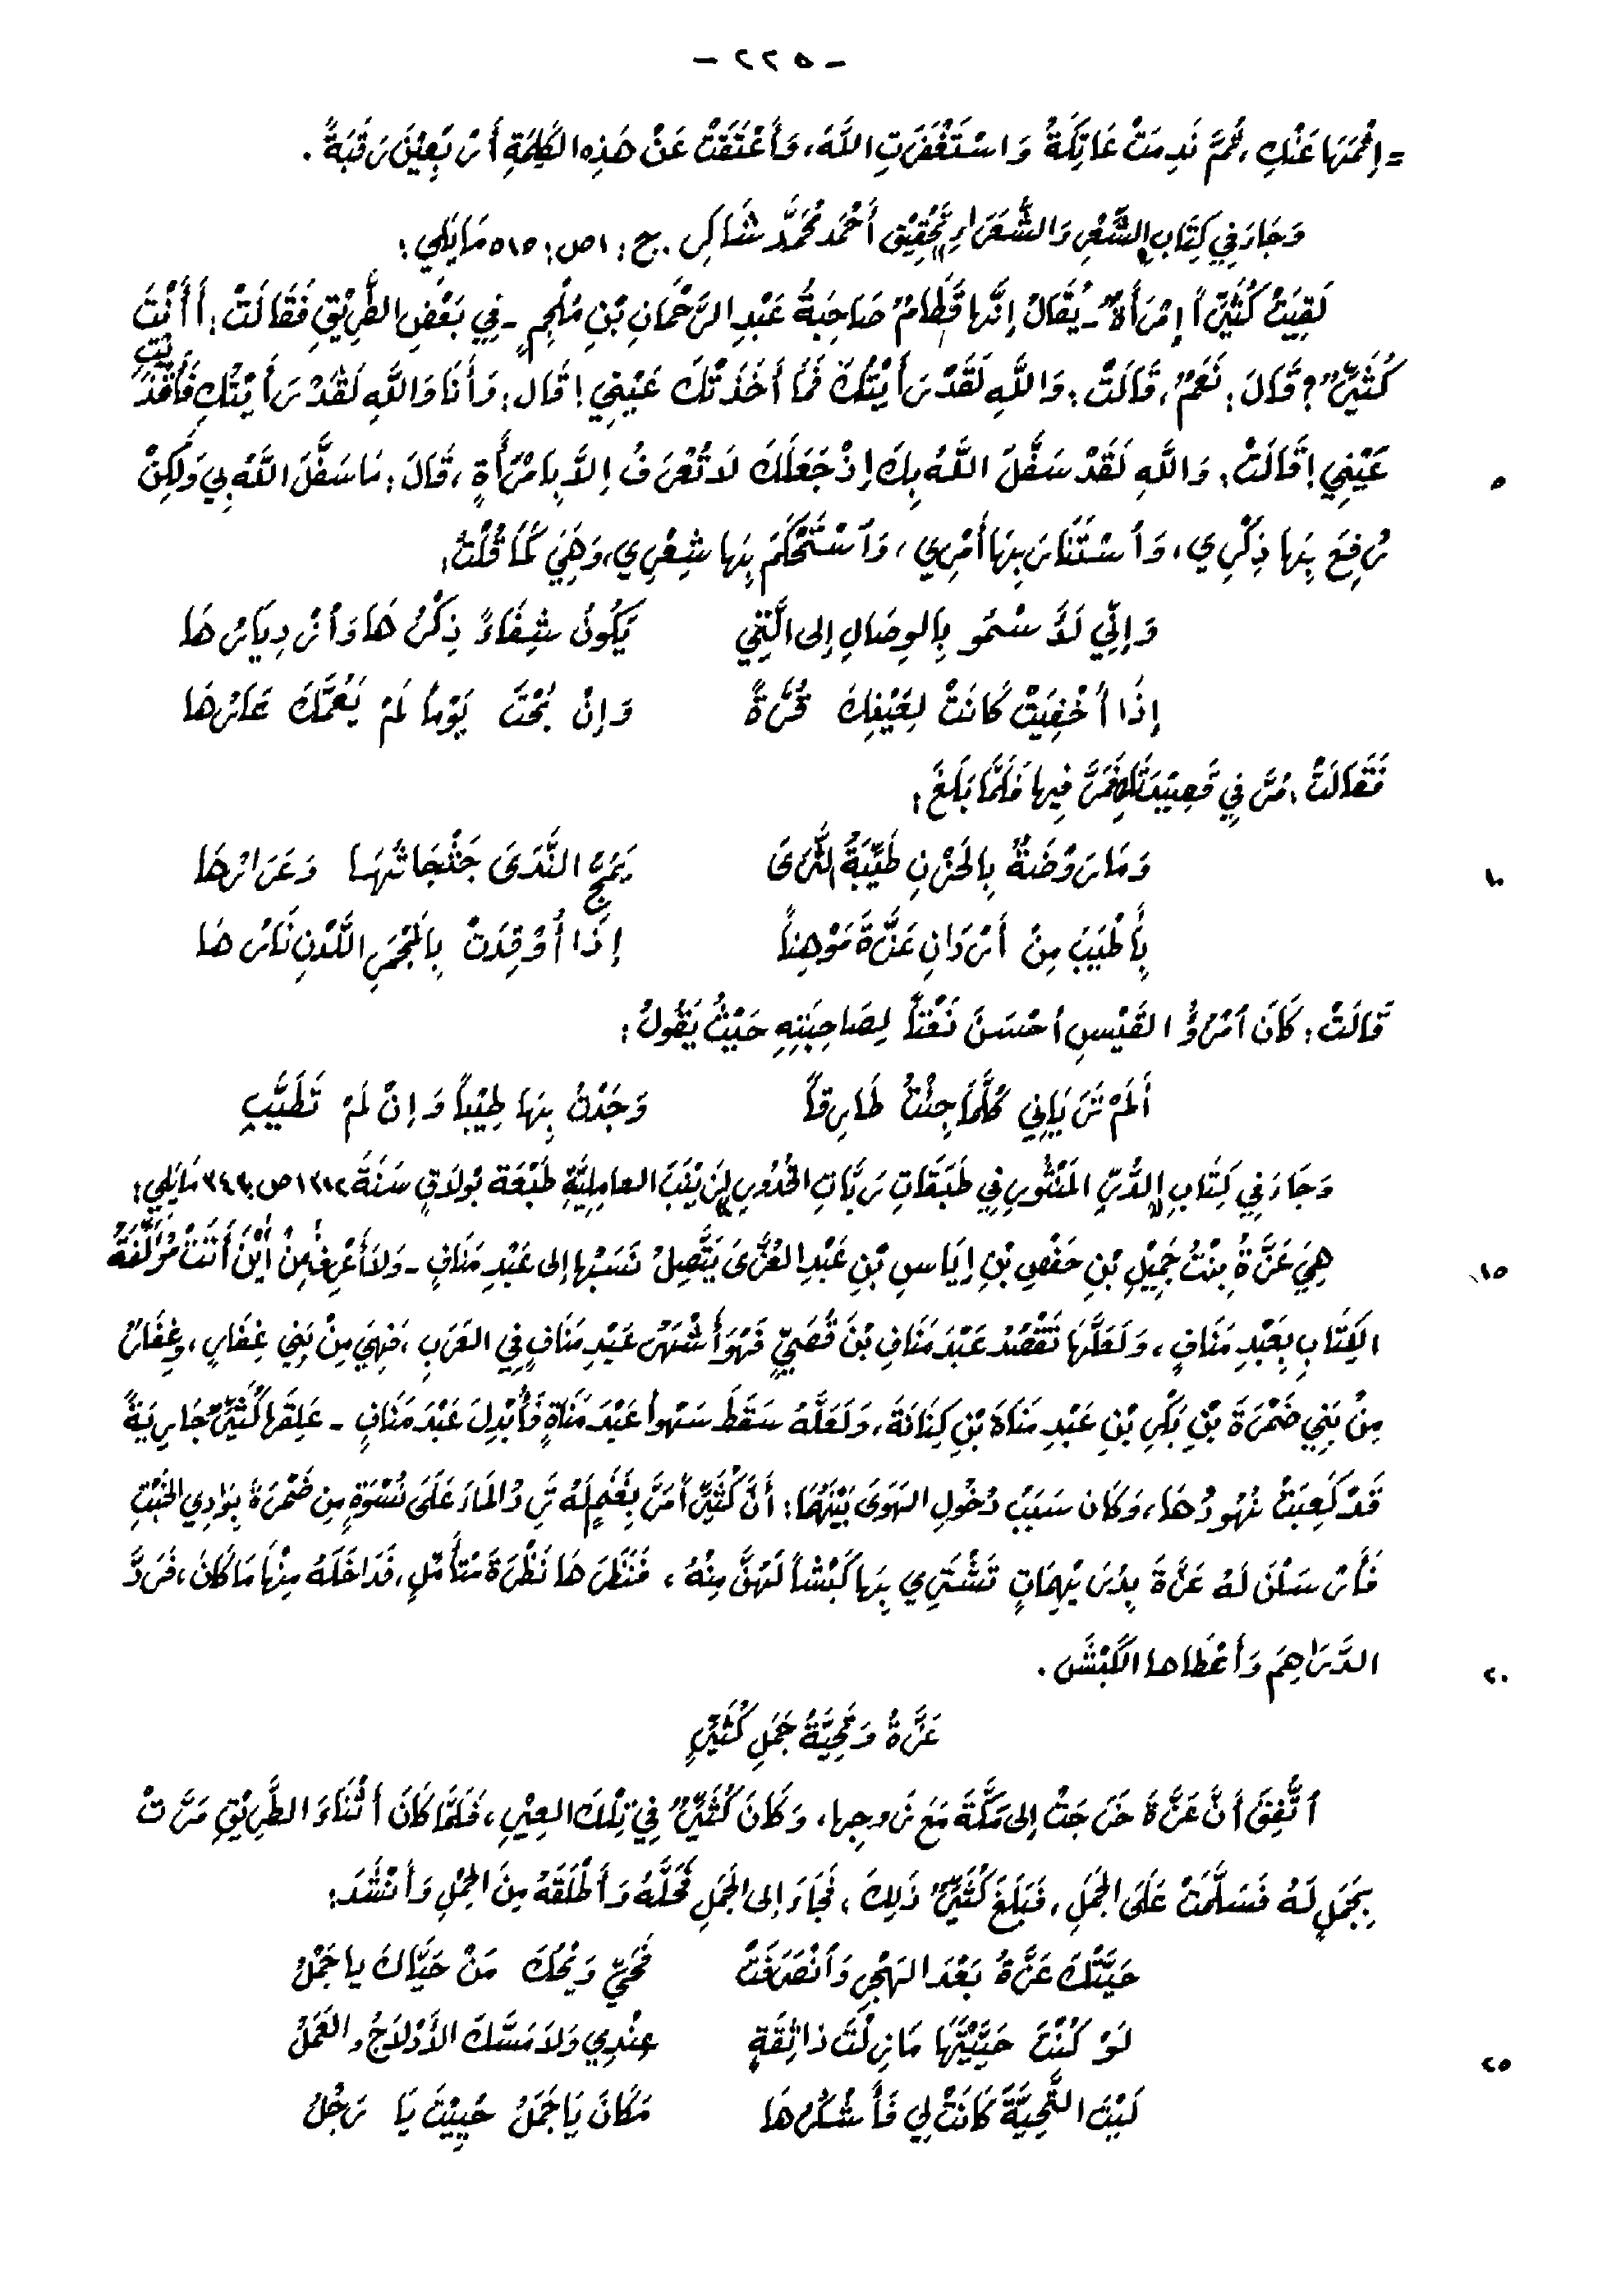 - ٥٢٢ -
= إِثْمَهَا عَنْكِ، ثُمَّ نَدِمَتْ عَاتِكَةُ وَاسْتَغْفَرَتِ اللَّهَ، وَأَعْتَقَتْ عَنْ هَذِهِ الكَلِمَةِ أَرْبَعِيْنَ رَقَبَةً.
وَجَاءَ فِي كِتَابِ الشِّعْرِ وَالشُّعَرَاءِ تَحْقِيْقِ أَحْمَد مُحَمَّد شَاكِر. ج: ١ ص: ٥١٥ مَايَلِي:
لَقِيَتْ كُثَيِّراً إِمْرَأَةٌ - يُقَالُ إِنَّهَا قَطَامُ صَاحِبَةُ عَبْدِ الرَّحْمَانِ بْنِ مُلْجِمٍ - فِي بَعْضِ الطَّرِيْقِ فَقَالَتْ: أَأَنْتَ
كُثَيِّرٌ؟ قَالَ: نَعَمْ، قَالَتْ: وَاللَّهِ لَقَدْ رَأَيْتُكَ فَمَا أَخَذَتْكَ عَيْنِي! قَالَ: وَأَنَا وَاللَّهِ لَقَدْ رَأَيْتُكِ فَأَقْذَيْتِ
٥ عَيْنِي! قَالَتْ: وَاللَّهِ لَقَدْ سَفَّلَ اللَّهُ بِكَ إِذْ جَعَلَكَ لَا تُعْرَفُ إِلَّا بِامْرَأَةٍ، قَالَ: مَا سَفَّلَ اللَّهُ بِي وَلَكِنْ
رُفِعَ بِهَا ذِكْرِي، وَاسْتَنَارَ بِهَا أَمْرِي، وَاسْتَحْكَمَ بِهَا شِعْرِي، وَهِيَ كَمَا قُلْتُ:
وَإِنِّي لَأَسْمُو بِالوِصَالِ إِلى الَّتِي يَكُونُ شِفَاءً ذِكْرُهَا وَازْدِيَارُهَا
إِذَا أُخْفِيَتْ كَانَتْ لِعَيْنِكَ قُرَّةً وَإِنْ بُحْتَ يَوْماً لَمْ يَعُمَّكَ عَارُهَا
فَقَالَتْ: مُرَّ فِي قَصِيْدَتِكَ فَمَرَّ فِيها فَلَمَّا بَلَغَ:
١٠ وَمَا رَوْضَةٌ بِالحَزْنِ طَيِّبَةُ الثَّرَى يَمُجُّ النَّدَى جَثْجَاثُهَا وَعَرَارُهَا
بِأَطْيَبَ مِنْ أَرْدَانِ عَزَّةَ مَوْهِناً إِذَا أُوْقِدَتْ بِالمِجْمَرِ اللَّدْنِ نَارُهَا
قَالَتْ: كَانَ امْرُؤُ القَيْسِ أَحْسَنَ نَعْتاً لِصَاحِبَتِهِ حَيْثُ يَقُولُ:
أَلَمْ تَرَيَانِي كُلَّمَا جِئْتُ طَارِقاً وَجَدْتُ بِهَا طِيْباً وَإِنْ لَمْ تَطَيَّبِ
وَجَاءَ فِي كِتَابِ الدُّرِّ المَنْثُورِ فِي طَبَقَاتِ رَبَّاتِ الخُدُورِ لِزَيْنَبَ العامِلِيَّةِ طَبْعَة بُولَاق سَنَةَ ١٣١٢ ص: ٣٤٣ مَايَلِي:
١٥ هِيَ عَزَّةُ بِنْتُ جَمِيْلِ بْنِ حَفْصِ بْنِ إِيَاسِ بْنِ عَبْدِ العُزَّى يَتَّصِلُ نَسَبُهَا إِلى عَبْدِ مَنَافٍ - وَلَا أَعْرِفُ مِنْ أَيْنَ أَتَتْ مُؤَلِّفَةُ
الكِتَابِ بِعَبْدِ مَنَافٍ، وَلَعَلَّهَا تَقْصُدُ عَبْدَ مَنَافِ بْنَ قُصَيٍّ فَهُوَ أَشْهَرُ عَبْدِ مَنَافٍ فِي العَرَبِ، فَهِيَ مِنْ بَنِي غِفَارٍ، وَغِفَارُ
مِنْ بَنِي ضَمْرَةَ بْنِ بَكْرِ بْنِ عَبْدِ مَنَاةَ بْنِ كِنَانَةَ، وَلَعَلَّهُ سَقَطَ سَهْواً عَبْدَ مَنَاةٍ فَأُبْدِلَ عَبْدَ مَنَافٍ - عَلِقَهَا كُثَيِّرٌ جَارِيَةً
قَدْ كَعِبَتْ نُهُودُهَا، وَكَانَ سَبَبُ دُخُولِ الهَوَى بَيْنَهُمَا: أَنَّ كُثَيِّراً مَرَّ بِغَنَمٍ لَهُ تَرِدُ المَاءَ عَلَى نُسْوَةٍ مِن ضَمْرَةَ بِوَادِي الخَبْتِ
فَأَرْسَلْنَ لَهُ عَزَّةَ بِدُرَيْهِمَاتٍ تَشْتَرِي بِهَا كَبْشاً لَهُنَّ مِنْهُ، فَنَظَرَهَا نَظْرَةَ مُتَأَمِّلٍ، فَدَاخَلَهُ مِنْهَا مَا كَانَ، فَرَدَّ
٢٠ الدَّرَاهِمَ وَأَعْطَاهَا الكَبْشَ.
عَزَّةُ وَتَحِيَّةُ جَمَلِ كُثَيِّرٍ
اتُّفِقَ أَنَّ عَزَّةَ خَرَجَتْ إِلى مَكَّةَ مَعَ زَوجِها، وَكَانَ كُثَيِّرٌ فِي تِلْكَ العِيْرِ، فَلَمَّا كَانَ أَثْنَاءَ الطَّرِيْقِ مَرَّتْ
بِجَمَلٍ لَهُ فَسَلَّمَتْ عَلَى الجَمَلِ، فَبَلَغَ كُثَيِّرٌ ذَلِكَ، فَجَاءَ إِلى الجَمَلِ فَحَلَّهُ وَأَطْلَقَهُ مِنَ الحِمْلِ وَأَنْشَدَ:
حَيَّتْكَ عَزَّةُ بَعْدَ الهَجْرِ وَانْصَرَفَتْ فَحَيِّ وَيْحَكَ مَنْ حَيَّاكَ يا جَمَلُ
٢٥ لَوْ كُنْتَ حَيَّيْتَهَا مَا زِلْتَ ذَا ثِقَةٍ عِنْدِي وَلَا مَسَّكَ الأَدْلَاجُ والعَمَلُ
لَيْتَ التَّحِيَّةَ كَانَتْ لِي فَأَشْكُرُهَا مَكَانَ يَا جَمَلُ حُيِيْتَ يَا رَجُلُ